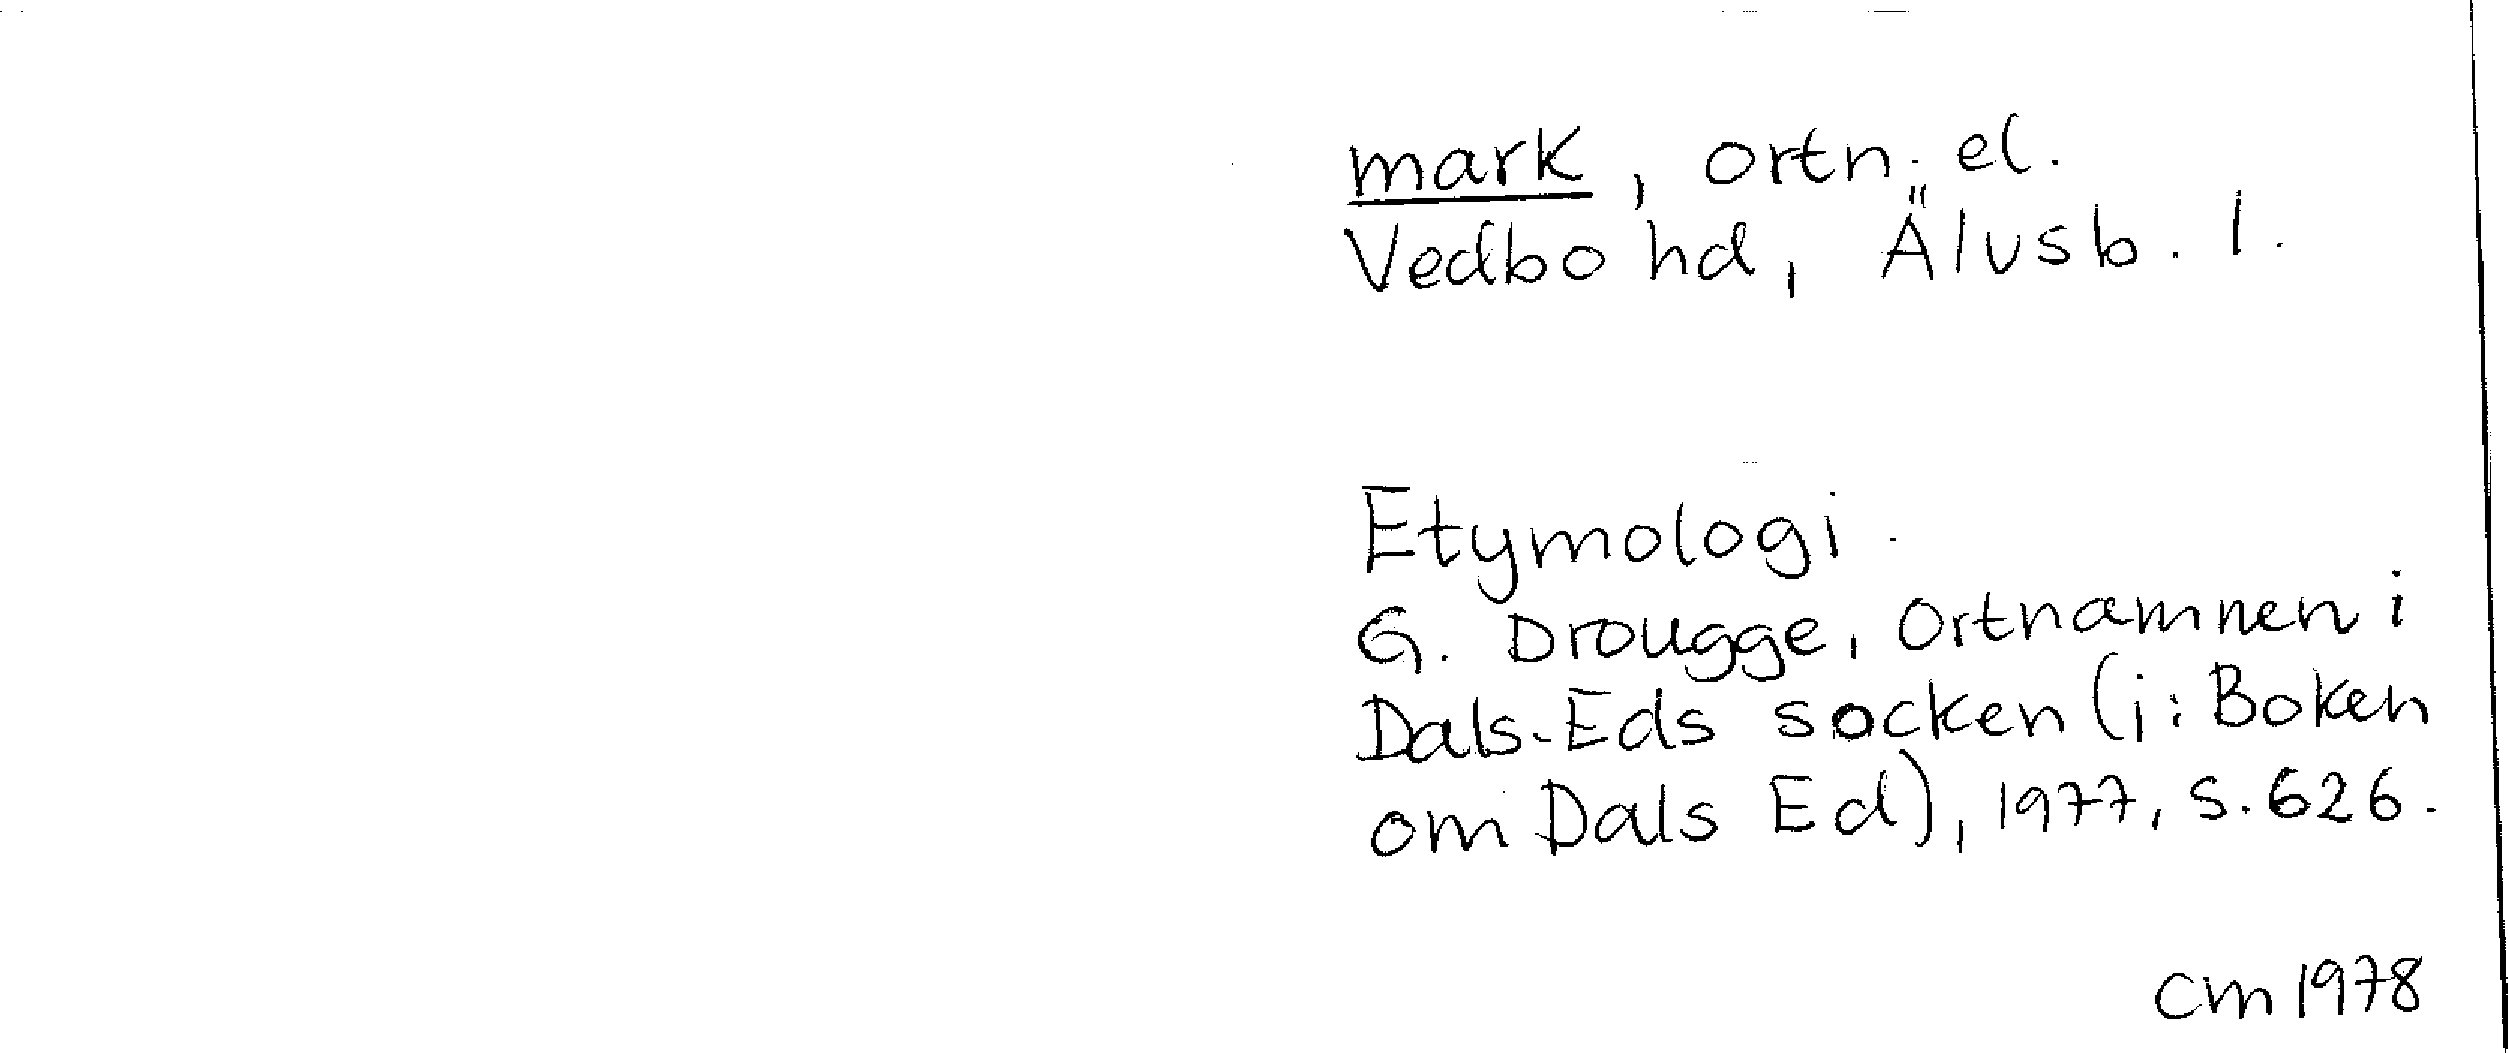 mark, ortn. el.
Vedbo hd, Älvsb. l.
Etymologi.
G. Drougge, Ortnamnen i
Dals-Eds socken (i: Boken
om Dals Ed), 1977, s. 626.
CM 1978